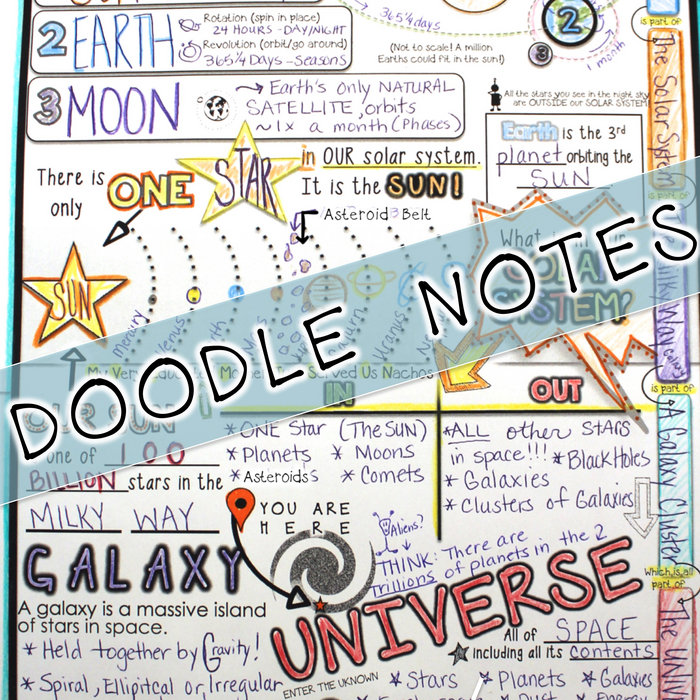 365 1/4 days
2
is part of
2 EARTH
Rotation (spin in place)
24 HOURS - DAY/NIGHT
Revolution (orbit/go around)
365 1/4 Days - Seasons
(Not to scale! A million
Earths could fit in the sun!)
3
1 month
3 MOON
→ Earth's only NATURAL
SATELLITE, orbits
~1x a month (Phases)
All the stars you see in the night sky
are OUTSIDE our SOLAR SYSTEM!
Earth is the 3rd
planet orbiting the
SUN
The Solar System
is part of
There is
only
ONE STAR
in OUR solar system.
It is the SUN!
Asteroid Belt
SUN
Mercury
Venus
Uranus
What
SOLAR
SYSTEM?
Milky Way
is part of
My Very
Served Us Nachos
DOODLE NOTES
OUR SUN
one of 100
BILLION stars in the
MILKY WAY
GALAXY
A galaxy is a massive island
of stars in space.
* Held together by Gravity!
* Spiral, Elliptcal or Irregular
IN
* ONE Star (The SUN)
* Planets * Moons
* Asteroids * Comets
OUT
* ALL other STARS
in space!!! * Black Holes
* Galaxies
* Clusters of Galaxies
A Galaxy Cluster
which is all
part of
The UNIV
YOU ARE
HERE
Aliens?
THINK: There are
Trillions of planets in the
UNIVERSE
All of SPACE
* including all its contents
ENTER THE UKNOWN
* Stars * Planets * Galaxies